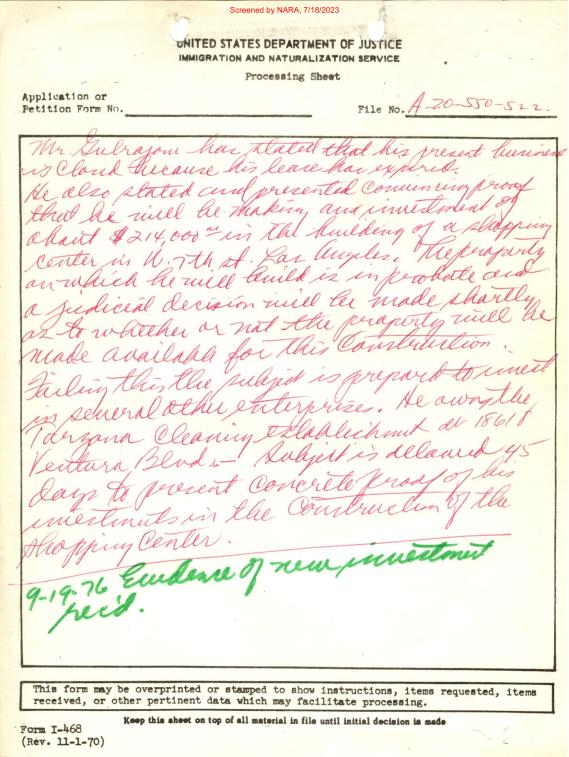 Screened by NARA, 7/18/2023
UNITED STATES DEPARTMENT OF JUSTICE
IMMIGRATION AND NATURALIZATION SERVICE
Processing Sheet
Application or
Petition Form No.
File No. A-20-550-522
Mr. has stated that his present business
is closed because his lease has expired.
He also stated and presented convincing proof
that he will be making and investment of
about $214,000 00 in the building of a shopping
center in W. 7th St. Los Angeles. The property
on which he will build is in probate and
a judicial decision will be made shortly
as to whether or not the property will be
made available for this construction.
Failing this the subject is prepared to invest
in several other enterprises. He owns the
Tarzana Cleaning establishment at 18618
Ventura Blvd. – Subject is allowed 45
days to present concrete proof of his
investments in the construction of the
shopping center.
9-19-76 Evidence of new investment
rec'd.
This form may be overprinted or stamped to show instructions, items requested, items
received, or other pertinent data which may facilitate processing.
Keep this sheet on top of all material in file until initial decision is made
Form I-468
(Rev. 11-1-70)